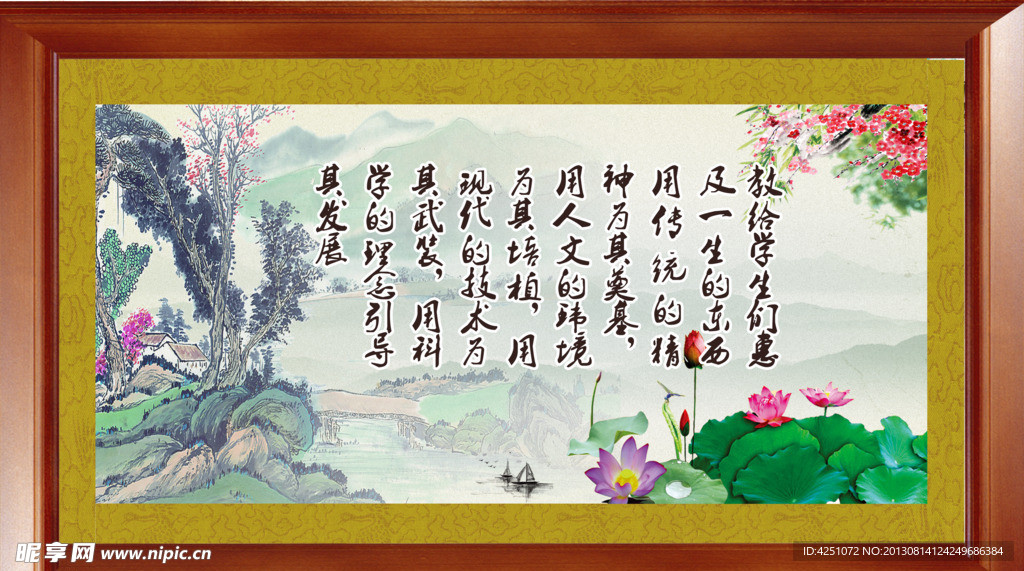 教给学生们惠
及一生的东西
用传统的精
神为其奠基，
用人文的玮境
为其培植，用
现代的技术为
其武装，用科
学的理念引导
其发展
昵享网 www.nipic.cn
ID:4251072 NO:20130814124249686384